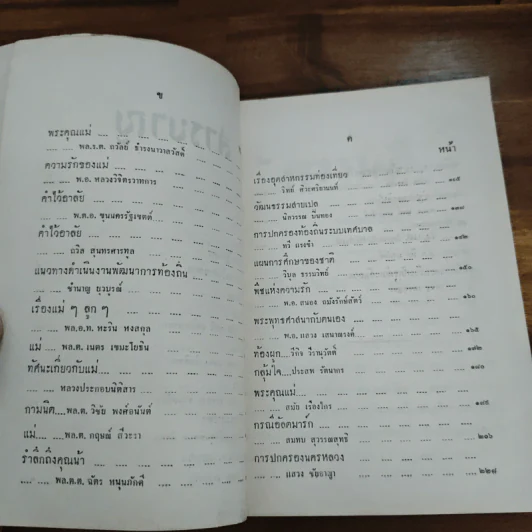 ข
พระคุณแม่ .... .... .... .... ....
.... .... พล.ร.ต. ถวัลย์ ธำรงนาวาสวัสดิ์
ความรักของแม่ .... .... .... ....
.... .... พ.อ. หลวงวิจิตรวาทการ
คำไว้อาลัย .... .... .... .... ....
.... .... พ.ต.อ. ขุนนครรัฐเขตต์
คำไว้อาลัย .... .... .... ....
.... .... ถวิล สุนทรศารทูล
แนวทางดำเนินงานพัฒนาการท้องถิ่น
.... .... ชำนาญ ยุวบูรณ์
เรื่องแม่ ๆ ลูก ๆ .... .... ....
.... .... พล.อ.ท. หะริน หงสกุล
แม่ .... พล.ต. เนตร เขมะโยธิน
ทัศนะเกี่ยวกับแม่ .... .... ....
.... .... หลวงประกอบนิติสาร
กามนิต .... พล.ต. วิชัย พงศ์อนันต์
แม่ .... .... พล.ต. กฤษณ์ สีวะรา
รำลึกถึงคุณน้า .... .... ....
.... .... พล.ต.ต. ฉัตร หนุนภักดี
ค
หน้า
เรื่องอุตสาหกรรมท่องเที่ยว
.... .... วิทย์ .... ....
วัฒนธรรมสายเปล .... .... ....
.... .... .... ๑๓๗
การปกครองท้องถิ่นระบบเทศบาล
.... .... ทวี แรงขำ .... .... ๑๔๒
แผนการศึกษาของชาติ .... ....
.... .... วิบูล ธรรมวิทย์ .... .... ๑๕๐
พืชแห่งความรัก .... .... ....
.... .... พ.อ. ถนอง .... ๑๖๐
พระพุทธศาสนากับตนเอง .... ....
.... .... พ.อ. แสวง เสนาณรงค์ .... ๑๖๕
ท้องผูก .... วีกิจ วีรานุวัตติ์ .... .... ๑๗๒
กลุ้มใจ .... ประสพ รัตนากร .... ....
พระคุณแม่ .... .... .... ....
.... .... สบัก เรืองไกร .... ....
กรณีอัลตมาร์ก .... .... ....
.... .... สมทบ สุวรรณสุทธิ .... ๒๑๖
การปกครองนครหลวง .... ....
.... .... แสวง ชัยอาญา .... .... ๒๒๘